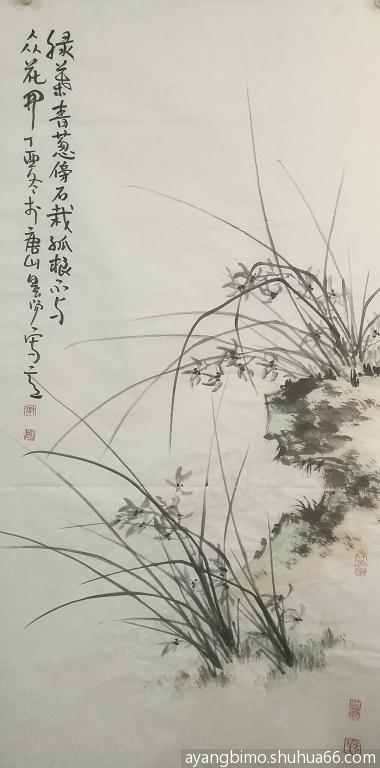 绿葉青葱傍石栽孤根不与
众花开丁酉冬於唐山写意
ayangbimo.shuhua66.com